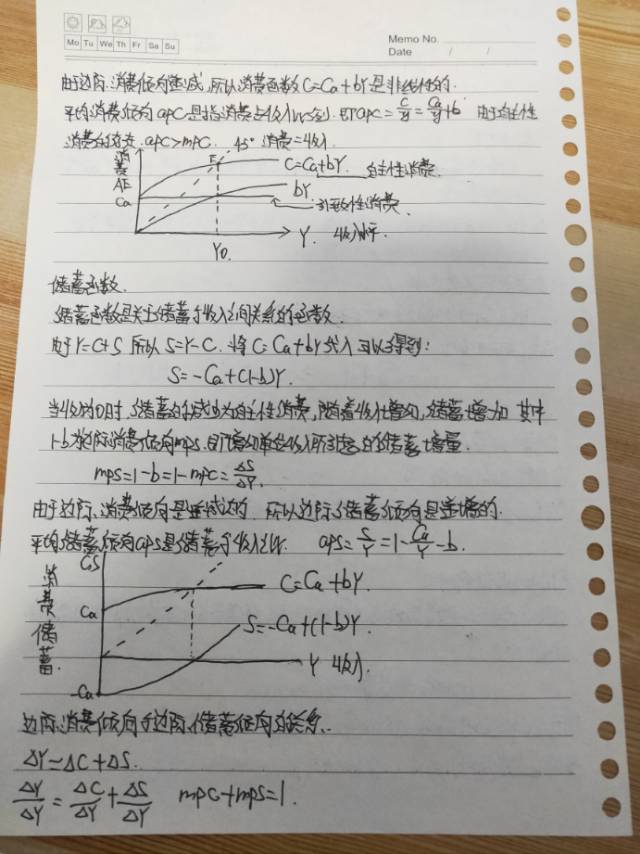 Mo Tu We Th Fr Sa Su
Memo No.
Date / /
由于边际消费倾向递减,所以消费函数C=Ca+bY是非线性的.
平均消费倾向apc是指消费占收入的比例.即apc=C/y=Ca/y+b 由于自主性
消费的存在,apc>mpc. 45° 消费=收入
消费
AE
Ca
E
C=Ca+bY.
自主性消费.
bY.
引致性消费.
Y0.
Y.
收入水平.
储蓄函数.
储蓄函数是关于储蓄与收入之间关系的函数.
由于Y=C+S 所以S=Y-C. 将C=Ca+bY代入可以得到:
S=-Ca+(1-b)Y.
当收入为0时,储蓄的减少为自主性消费,随着收入增加,储蓄增加 其中
1-b为边际消费倾向mps.即增加单位收入所引起的储蓄增量.
mps=1-b=1-mpc=ΔS/ΔY.
由于边际消费倾向是递减的 所以边际储蓄倾向是递增的.
平均储蓄倾向aps是储蓄与收入之比. aps=S/Y=1-Ca/Y-b.
CS
消费储蓄.
Ca
-Ca
C=Ca+bY.
S=-Ca+(1-b)Y.
Y 收入.
边际消费倾向与边际储蓄倾向的关系.
ΔY=ΔC+ΔS.
ΔY/ΔY=ΔC/ΔY+ΔS/ΔY mpc+mps=1.